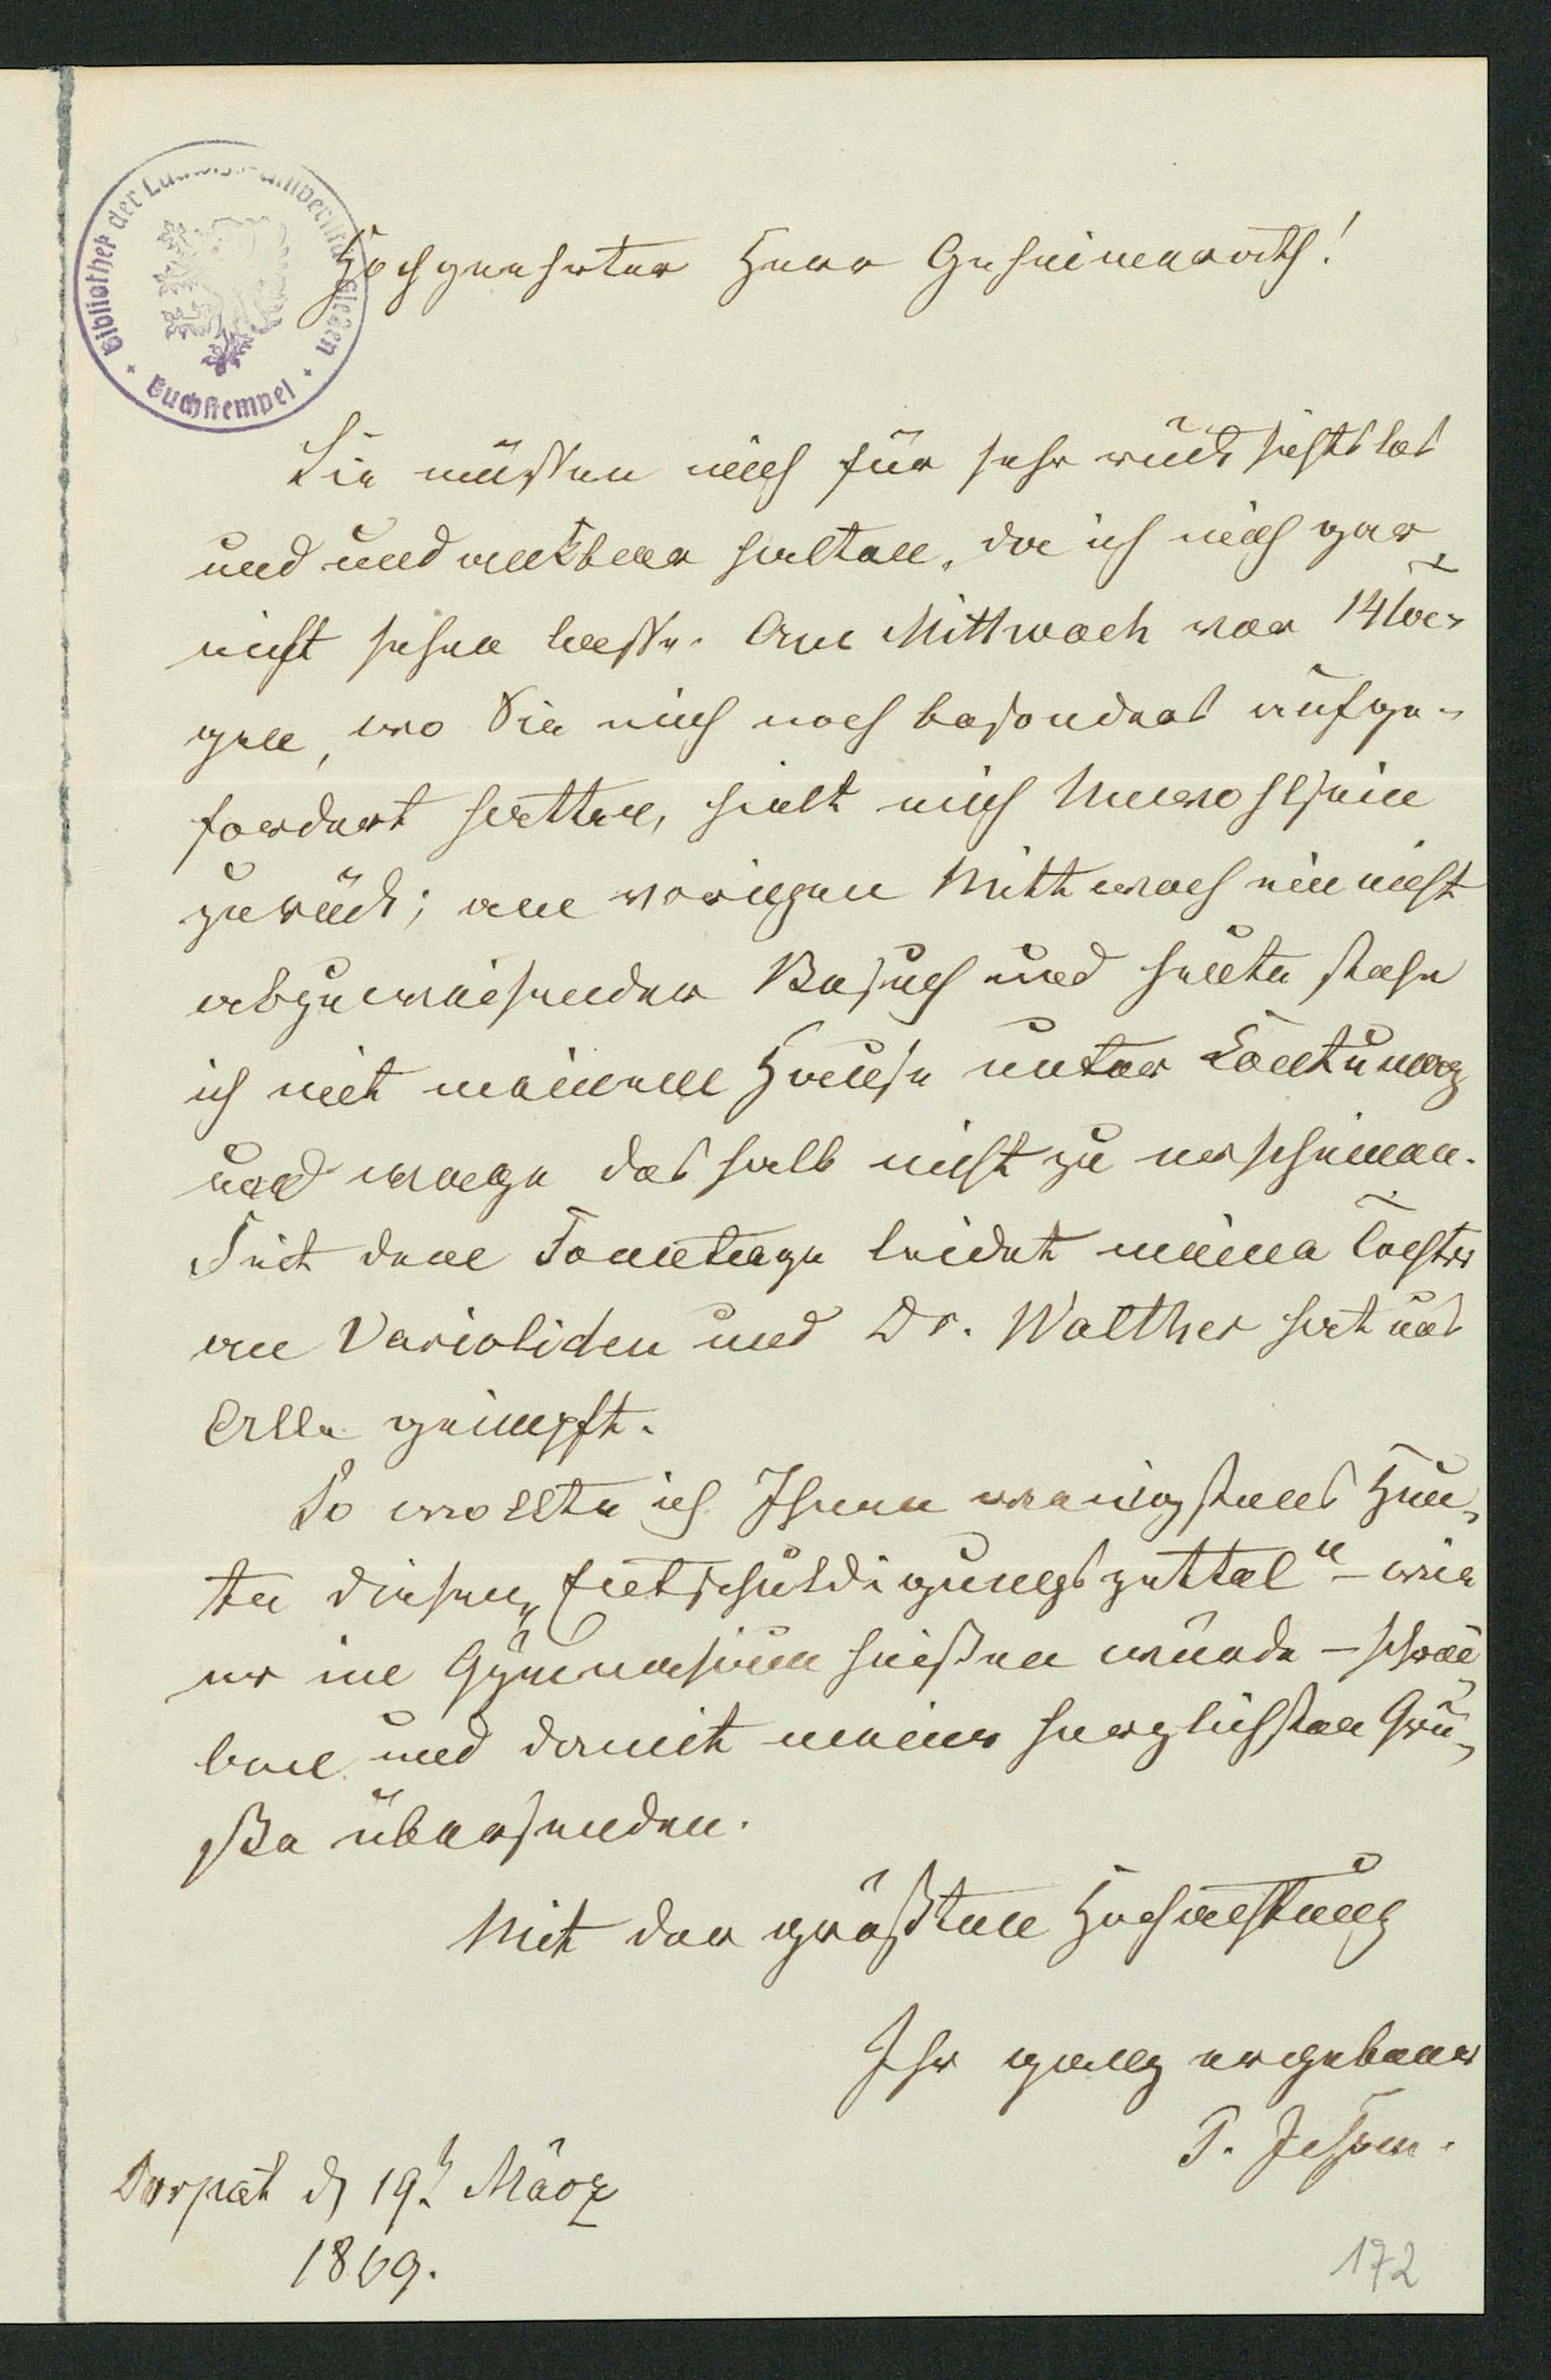 Bibliothek der Ludwigs-Universität Gießen
Buchstempel
Hochgeehrter Herr Geheimerath!
Sie müssen mich für sehr rücksichtslos
und undankbar halten, da ich mich gar
nicht sehen lasse. Am Mittwoch vor 14 Ta-
gen, wo Sie mich noch besonders aufge-
fordert hatten, hielt mich Unwohlsein
zurück; am vorigen Mittwoch ein nicht
abzuweisender Besuch und heute stehe
ich mit meinem Hause unter Contumaz
und wage deshalb nicht zu erscheinen.
Seit dem Sonntage leidet meine Tochter
an Varioliden und Dr. Walther hat uns
Alle geimpft.
So wollte ich Ihnen wenigstens heu-
te diesen „Entschuldigungszettel“ – wie
er im Gymnasium heißen würde – schrei-
ben und damit meine herzlichsten Grü-
ße übersenden.
Mit der größten Hochachtung
Ihr ganz ergebener
P. Jessen.
Dorpat d 19. März
1869.
172